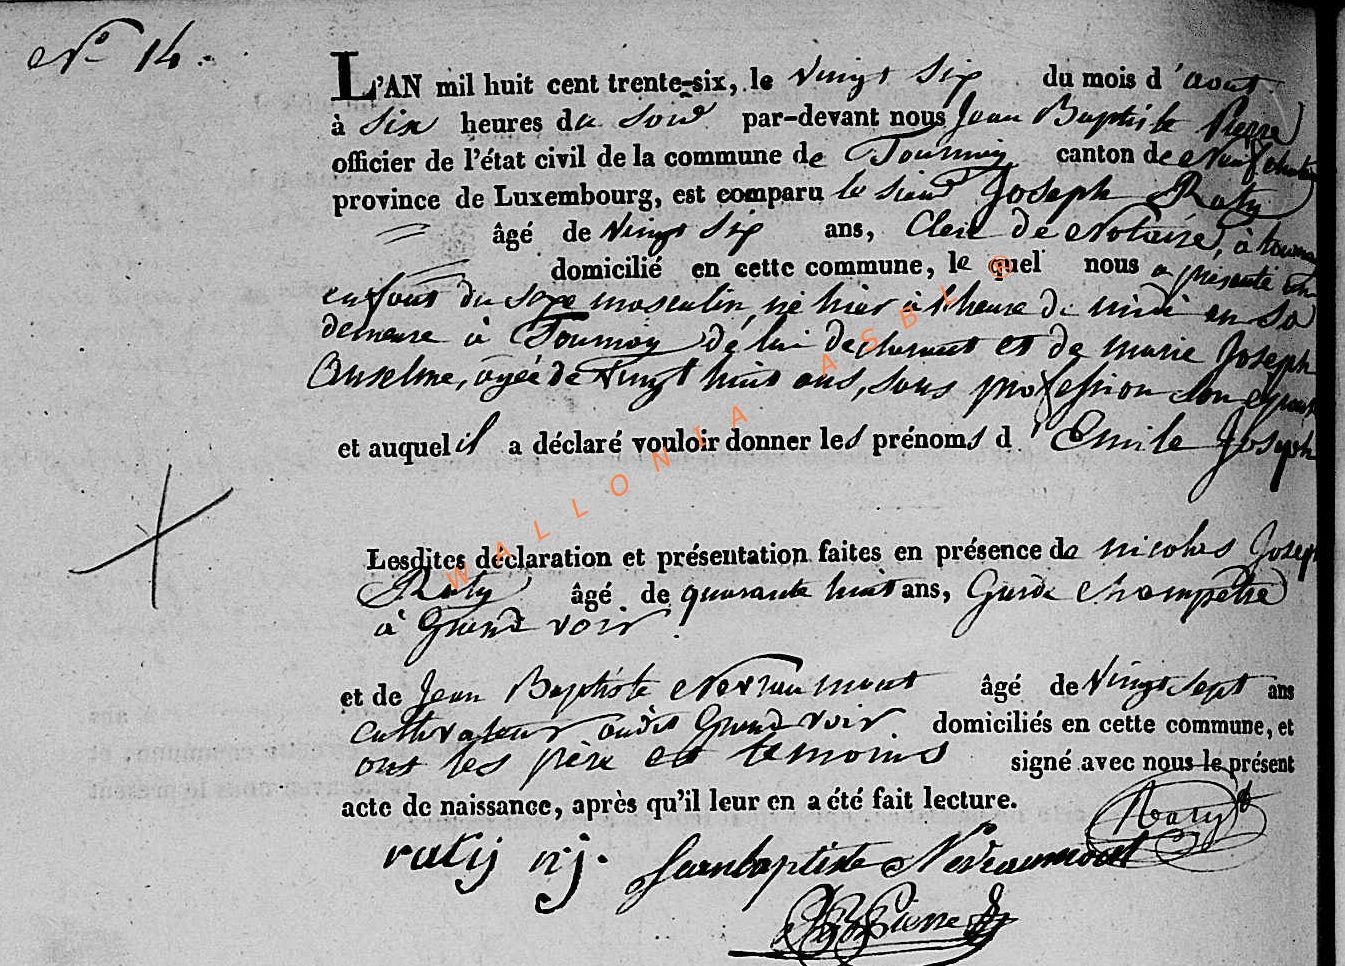 N° 14.
L'AN mil huit cent trente-six, le vingt six du mois d'aout
à six heures du soir par-devant nous Jean Baptiste Pierre
officier de l'état civil de la commune de Tournay canton de Neufchateau
province de Luxembourg, est comparu le sieur Joseph Raty
âgé de vingt six ans, Clerc de Notaire, à tournay
domicilié en cette commune, lequel nous a présenté un
enfant du sexe masculin, né hier à l'heure de midi en sa
demeure à Tournay de lui declarant et de marie Joseph
Anselme, agée de vingt huit ans, sans profession son epouse
et auquel il a déclaré vouloir donner les prénoms d'Emile Joseph
Lesdites déclaration et présentation faites en présence de nicolas Joseph
Raty âgé de quarante huit ans, Garde champêtre
à Grand voir.
et de Jean Baptiste Nevraumont âgé de vingt sept ans
cultivateur audit Grand voir domiciliés en cette commune, et
ont les père et temoins signé avec nous le présent
acte de naissance, après qu'il leur en a été fait lecture.
Raty
raty nj. Jeanbaptiste Nevraumont
JB Pierre
WALLONIA ASBL @